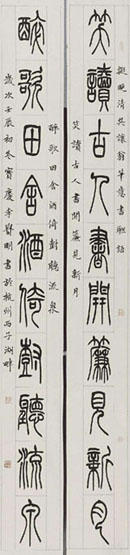 擬晚清吳讓翁筆意書聯語
笑讀古人書開簾見新月
笑讀古人書開簾見新月
醉歌田舍酒倚尌聽流泉
醉歌田舍酒倚尌聽流泉
歲次壬辰初冬寶慶李剛書於杭州西子湖畔